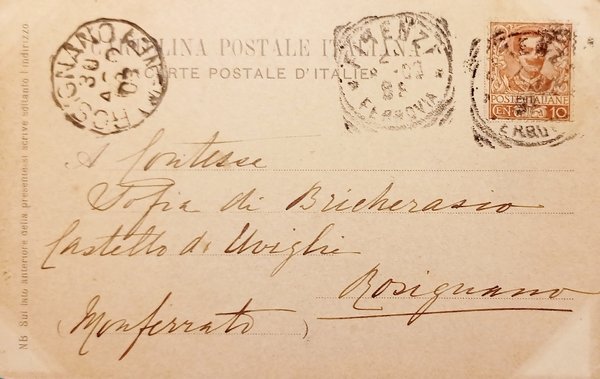 CARTOLINA POSTALE ITALIANA
(CARTE POSTALE D'ITALIE)
ROSIGNANO MONF.
30
03
FIRENZE
FERROVIA
FIRENZE
FERROVIA
POSTE ITALIANE
CENT. 10
A Contesse
Sofia di Bricherasio
Castello di Uviglie
Rosignano
(Monferrato)
NB. Sul lato anteriore della presente si scrive soltanto l'indirizzo.